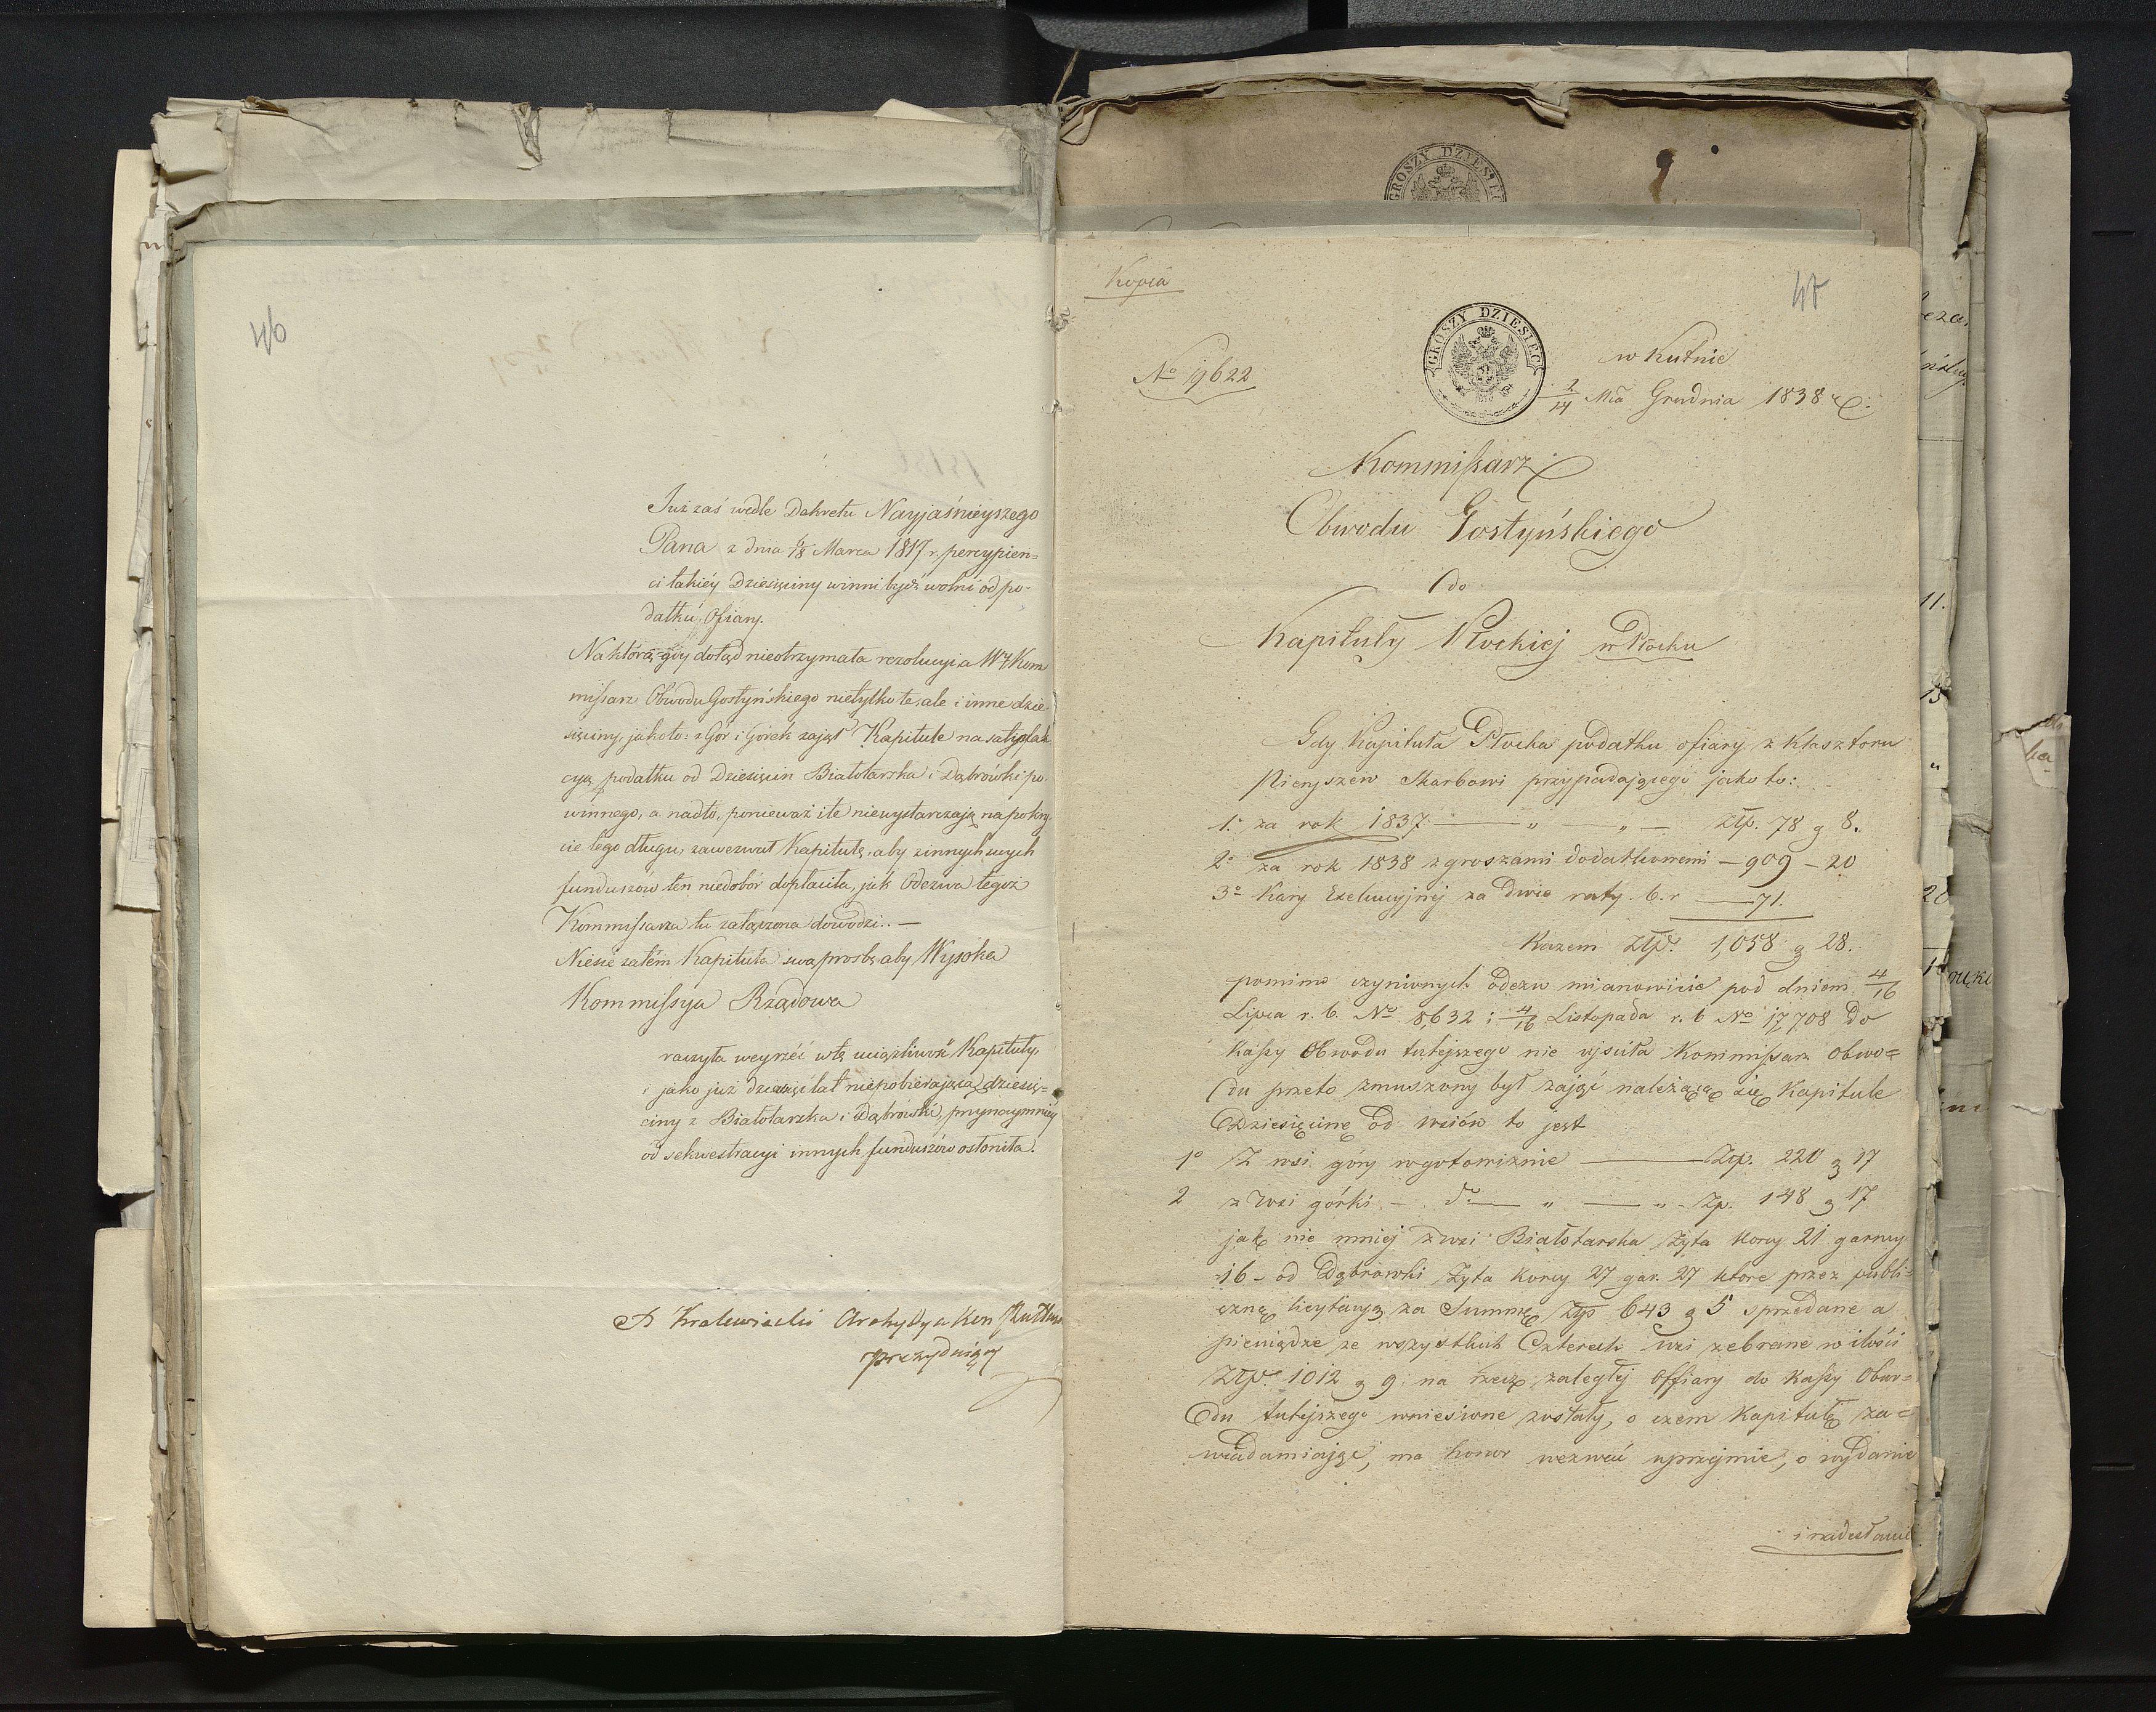 46
Już zaś wedle Dekretu Nayjaśnieyszego
Pana z dnia 6/18 Marca 1817 r. percypien=
ci takiéy Dziesięciny winni bydź wolni od po-
datku Ofiary.
Na którą gdy dotąd nieotrzymała rezolucyi a WJ Kom
missarz Obwodu Gostyńskiego nietylko te, ale i inne dzie-
sięciny, jakoto: z Gór i Górek zajął Kapitule na satysfak
cyą podatku od Dziesięcin Białotarska i Dąbrówki po-
winnego, a nadto, ponieważ i te niewystarczają na pokry
cie tego długu, zawezwał Kapitułę, aby z innych swych
funduszów ten niedobór dopłaciła, jak Odezwa tegoż
Kommissarza tu załączona dowodzi. —
Niesie zatém Kapituła swą prośbę aby Wysoka
Kommissya Rządowa
raczyła weyrzéć w tę uciążliwość Kapituły,
jako już dziewięć lat niepobierającą dziesię=
ciny z Białotarska i Dąbrówki, przynaymniéy
od sekwestracyi innych funduszów osłoniła.
Archydyakon
prezydujący
Kopia
47
GROSZY DZIESIĘĆ
No 19622
w Kutnie
2/14 Mca Grudnia 1838 r.
Kommissarz
Obwodu Gostyńskiego
do
Kapituły Płockiej w Płocku
Gdy Kapituła Płocka podatku ofiary z Klasztoru
Skarbowi przypadającego jako to:
1.o za rok 1837 — „ — „ — Złp. 78 g 8.
2o za rok 1838 z groszami dodatkowemi — 909 — 20
3o Kary Exekucyjnej za dwie raty b. r — 71.
Razem Złp. 1,058 g 28.
pomimo czynionych odezw mianowicie pod dniem 4/16
Lipca r. b. No 8,632 i 4/16 Listopada r. b No 17,708 do
Kassy Obwodu tutejszego nie uiściła Kommissarz Obwo=
du przeto zmuszony był zająć należącą się Kapitule
Dziesięcinę od wsiów to jest
1o Z wsi góry w gotowiznie — Złp. 220 g 17
2 z Wsi górki — do — „ — „ — Zp. 148 g 17
jak nie mniej z wsi Białotarska Żyta korcy 21 garncy
16 – od Dąbrowki Żyta Korcy 27 gar. 27 które przez publi=
czną licytacyą za Summę Złp 643 g 5 sprzedane a
pieniądze ze wszystkich Czterech wsi zebrane w ilości
Złp. 1012 g 9 na rzecz zaległej Offiary do Kassy Obwo=
du tutejszego wniesione zostały, o czem Kapitułę za=
wiadamiając, ma honor wezwać uprzejmie, o wydanie
i nadesłanie